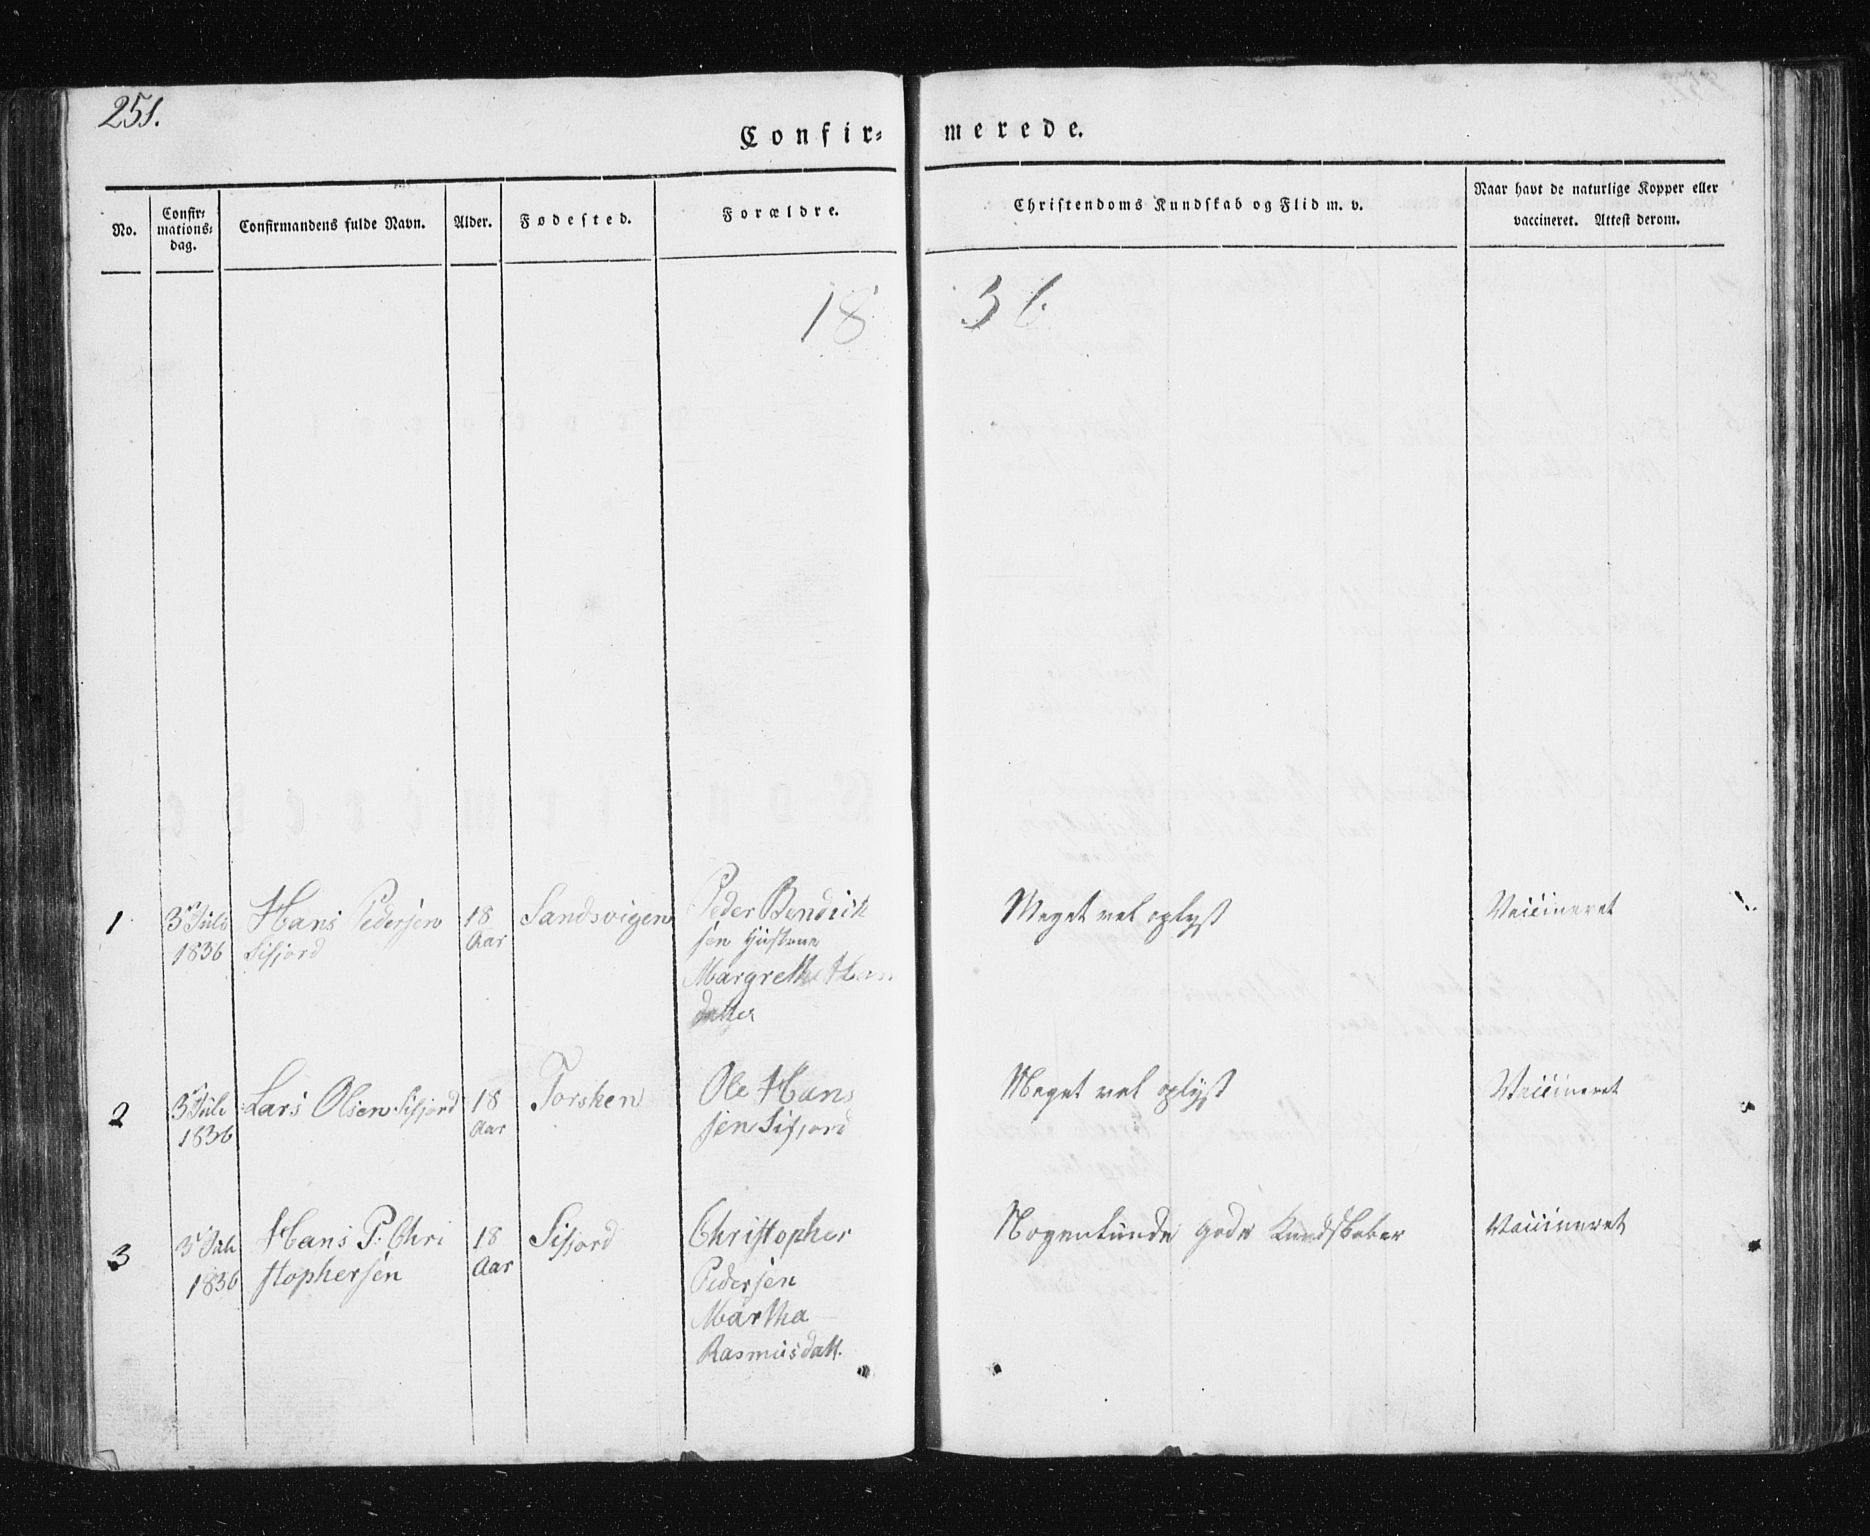 251.
Confir- merede.
No.
Confir-
mations-
dag.
Confirmandens fulde Navn.
Alder.
Fødested.
Forældre.
Christendoms Kundskab og Flid m. v.
Naar havt de naturlige Kopper eller
vaccineret. Attest derom.
18 36
1 3 Juli Hans Pedersen 18 Sandsvigen Peder Bendrik Meget vel oplyst Vaccineret
1836 Sifjord Aar sen Hustrue
Margrethe Han
datter
2 3 Juli Lars Olsen Sifjord 18 Torsken Ole Hans Meget vel oplyst Vaccineret
1836 Aar sen Sifjord
3 3 Juli Hans P. Chri 18 Sifjord Christopher Nogenlunde gode Kundskaber Vaccineret
1836 stophersen Aar Pedersen
Martha
Rasmusdatt.